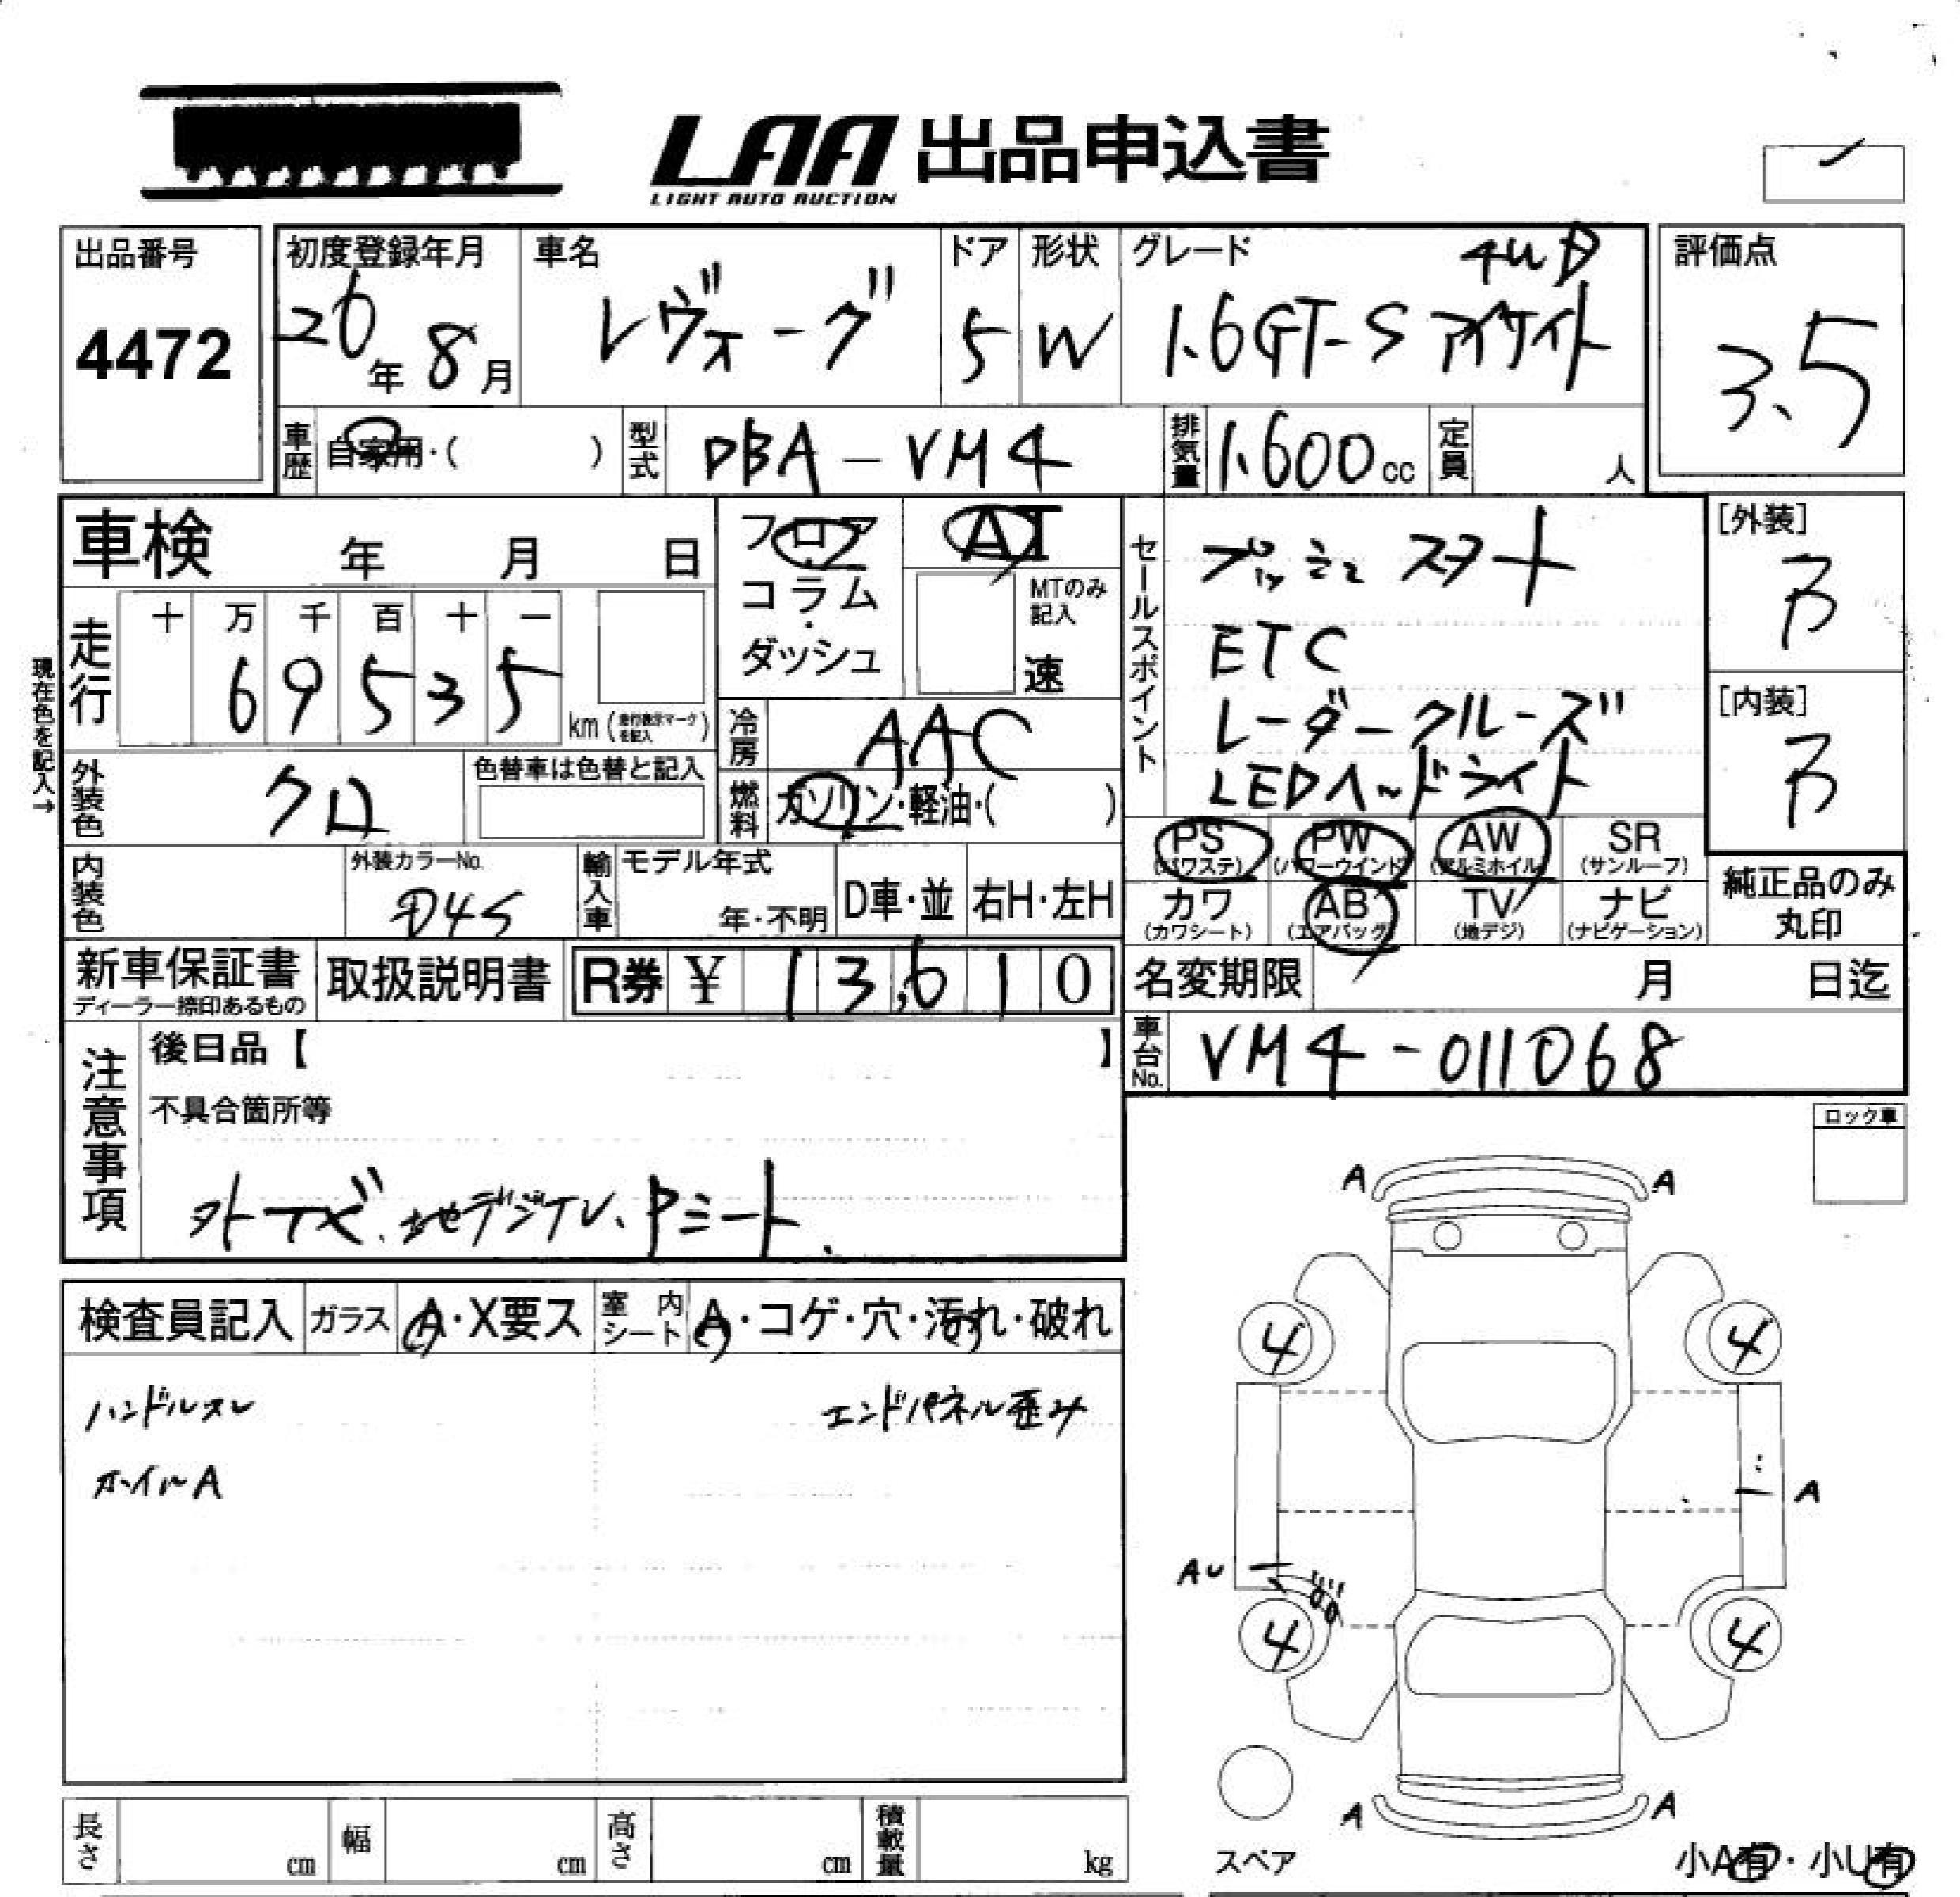 LAA 出品申込書
LIGHT AUTO AUCTION
出品番号
4472
初度登録年月
26年 8月
車名
レヴォーグ
ドア
5
形状
W
グレード
4WD
1.6GT-S アイサイト
評価点
3.5
車歴
自家用・( )
型式
DBA-VM4
排気量
1.600cc
定員
人
車検 年 月 日
フロア
・
コラム
・
ダッシュ
AT
MTのみ記入
速
セールスポイント
プッシュスタート
ETC
レーダークルーズ
LEDヘッドライト
[外装]
B
[内装]
B
現在色を記入→
走行
十 万 千 百 十 一
6 9 5 3 5
km (走行表示マークを記入)
冷房
AAC
外装色
クロ
色替車は色替と記入
燃料
ガソリン・軽油・( )
PS (パワステ)
PW (パワーウインド)
AW (アルミホイル)
SR (サンルーフ)
カワ (カワシート)
AB (エアバッグ)
TV (地デジ)
ナビ (ナビゲーション)
純正品のみ
丸印
内装色
外装カラーNo.
D4S
輸入車
モデル年式
年・不明
D車・並
右H・左H
新車保証書
ディーラー捺印あるもの
取扱説明書
R券 ¥ 13,610
名変期限 月 日迄
車台No.
VM4-011068
注意事項
後日品【 】
不具合箇所等
外ナビ、地デジTV、Pシート、
ロック車
検査員記入
ガラス
A・X要ス
室内シート
A・コゲ・穴・汚れ・破れ
ハンドルスレ
エンドパネル歪み
ホイールA
A A
4 4
A
AU
4 4
A A
スペア
小A有・小U有
長さ cm
幅 cm
高さ cm
積載量 kg